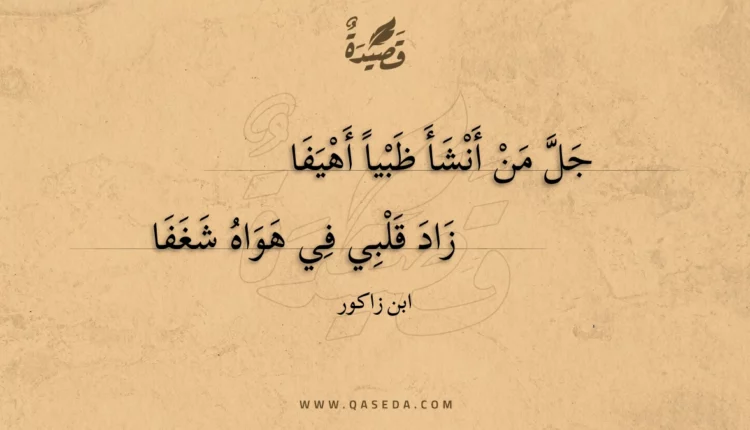 قَصِيْدَةٌ
جَلَّ مَنْ أَنْشَأَ ظَبْياً أَهْيَفَا
زَادَ قَلْبِي فِي هَوَاهُ شَغَفَا
ابن زاكور
WWW.QASEDA.COM